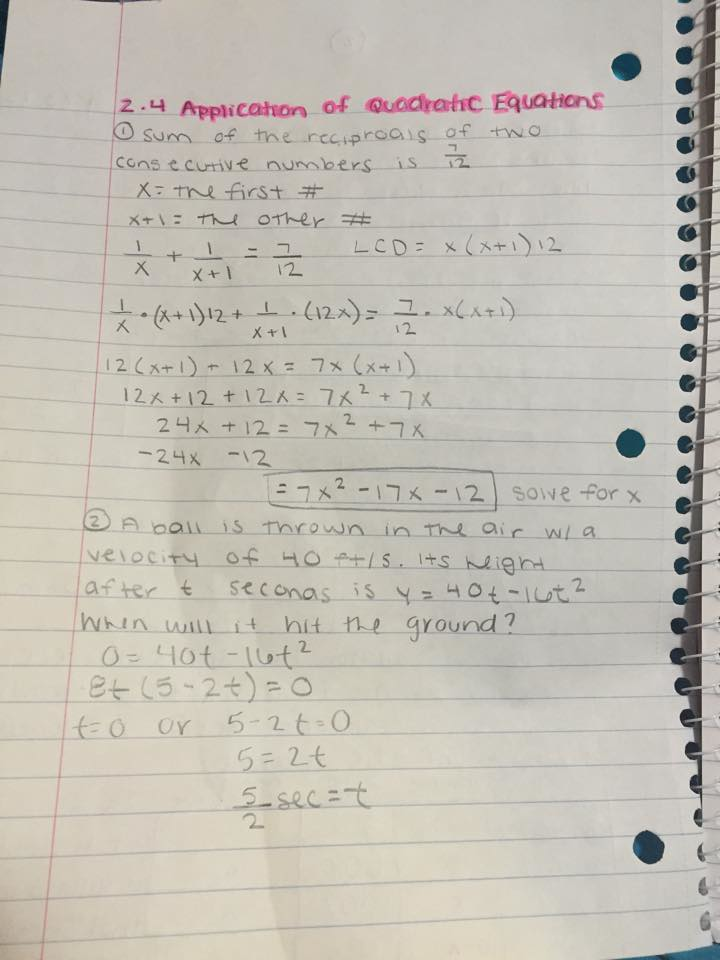 2.4 Application of Quadratic Equations
① Sum of the reciproals of two
consecutive numbers is 7/12
x = the first #
x+1 = the other #
1/x + 1/(x+1) = 7/12 LCD = x(x+1)12
1/x • (x+1)12 + 1/(x+1) • (12x) = 7/12 • x(x+1)
12(x+1) + 12x = 7x(x+1)
12x + 12 + 12x = 7x² + 7x
24x + 12 = 7x² + 7x
-24x -12
= 7x² - 17x - 12 solve for x
② A ball is thrown in the air w/ a
velocity of 40 ft/s. Its height
after t seconds is y = 40t - 16t²
When will it hit the ground?
0 = 40t - 16t²
8t(5 - 2t) = 0
t=0 or 5-2t=0
5 = 2t
5/2 sec = t